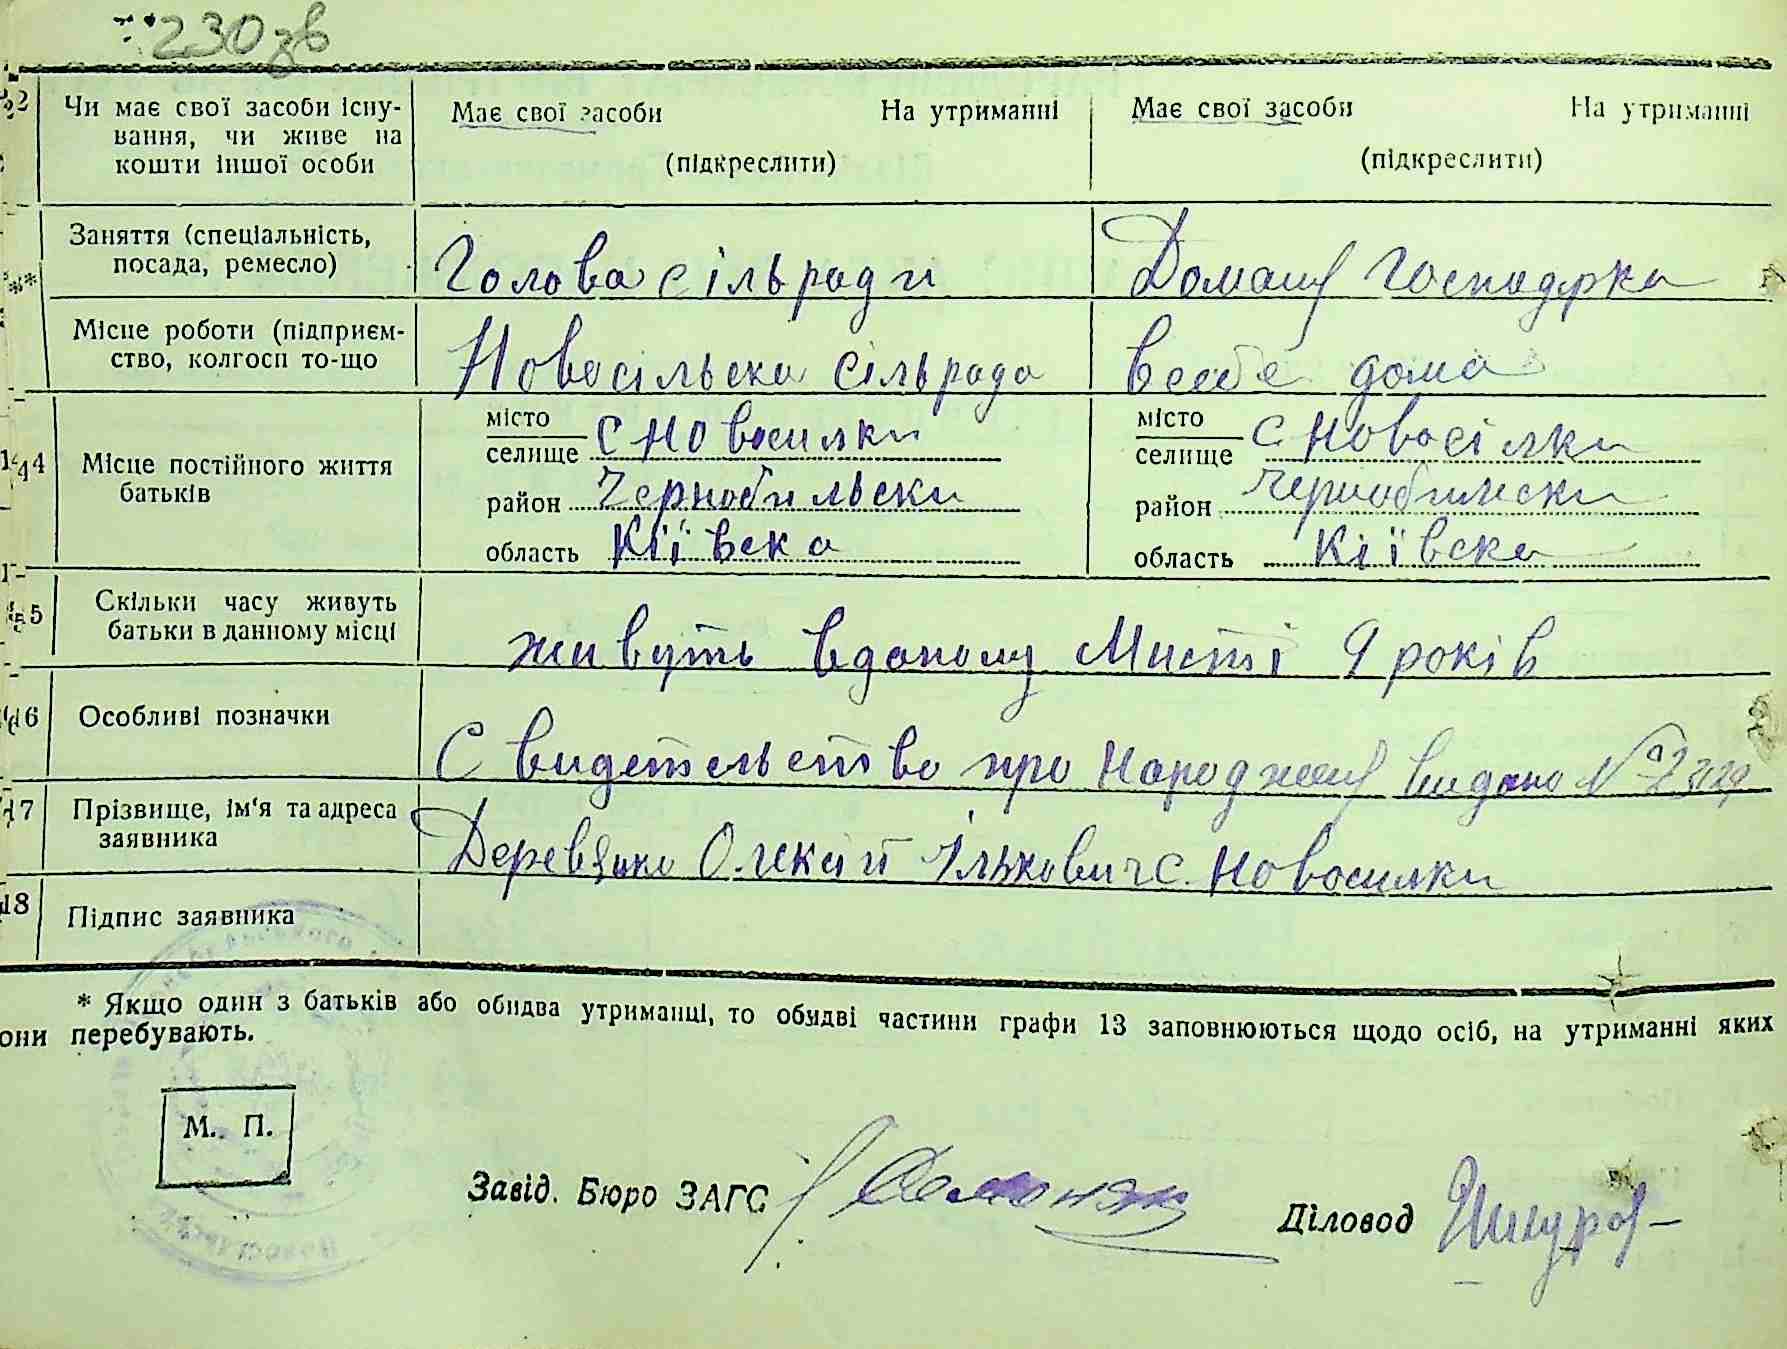 230 зв
Чи має свої засоби існу-
вання, чи живе на
кошти іншої особи
Має свої засоби На утриманні
(підкреслити)
Має свої засоби На утриманні
(підкреслити)
Заняття (спеціальність,
посада, ремесло)
Голова сільради
Домашу Господрка
Місце роботи (підприєм-
ство, колгосп то-що
Новосільска сільрада
всебе дома
14
Місце постійного життя
батьків
місто
селище с Новосилки
район Чернобильски
область Кіївска
місто
селище с Новосілки
район Чернобилски
область Кіївска
15
Скільки часу живуть
батьки в данному місці
живуть вданому Мисті 9 років
16
Особливі позначки
Свидетельство про Народжену видано №
17
Прізвище, ім'я та адреса
заявника
Деревянко Олексій Ількович с. Новосилки
18
Підпис заявника
* Якщо один з батьків або обидва утриманці, то обидві частини графи 13 заповнюються щодо осіб, на утриманні яких
они перебувають.
М. П.
Завід. Бюро ЗАГС
Діловод